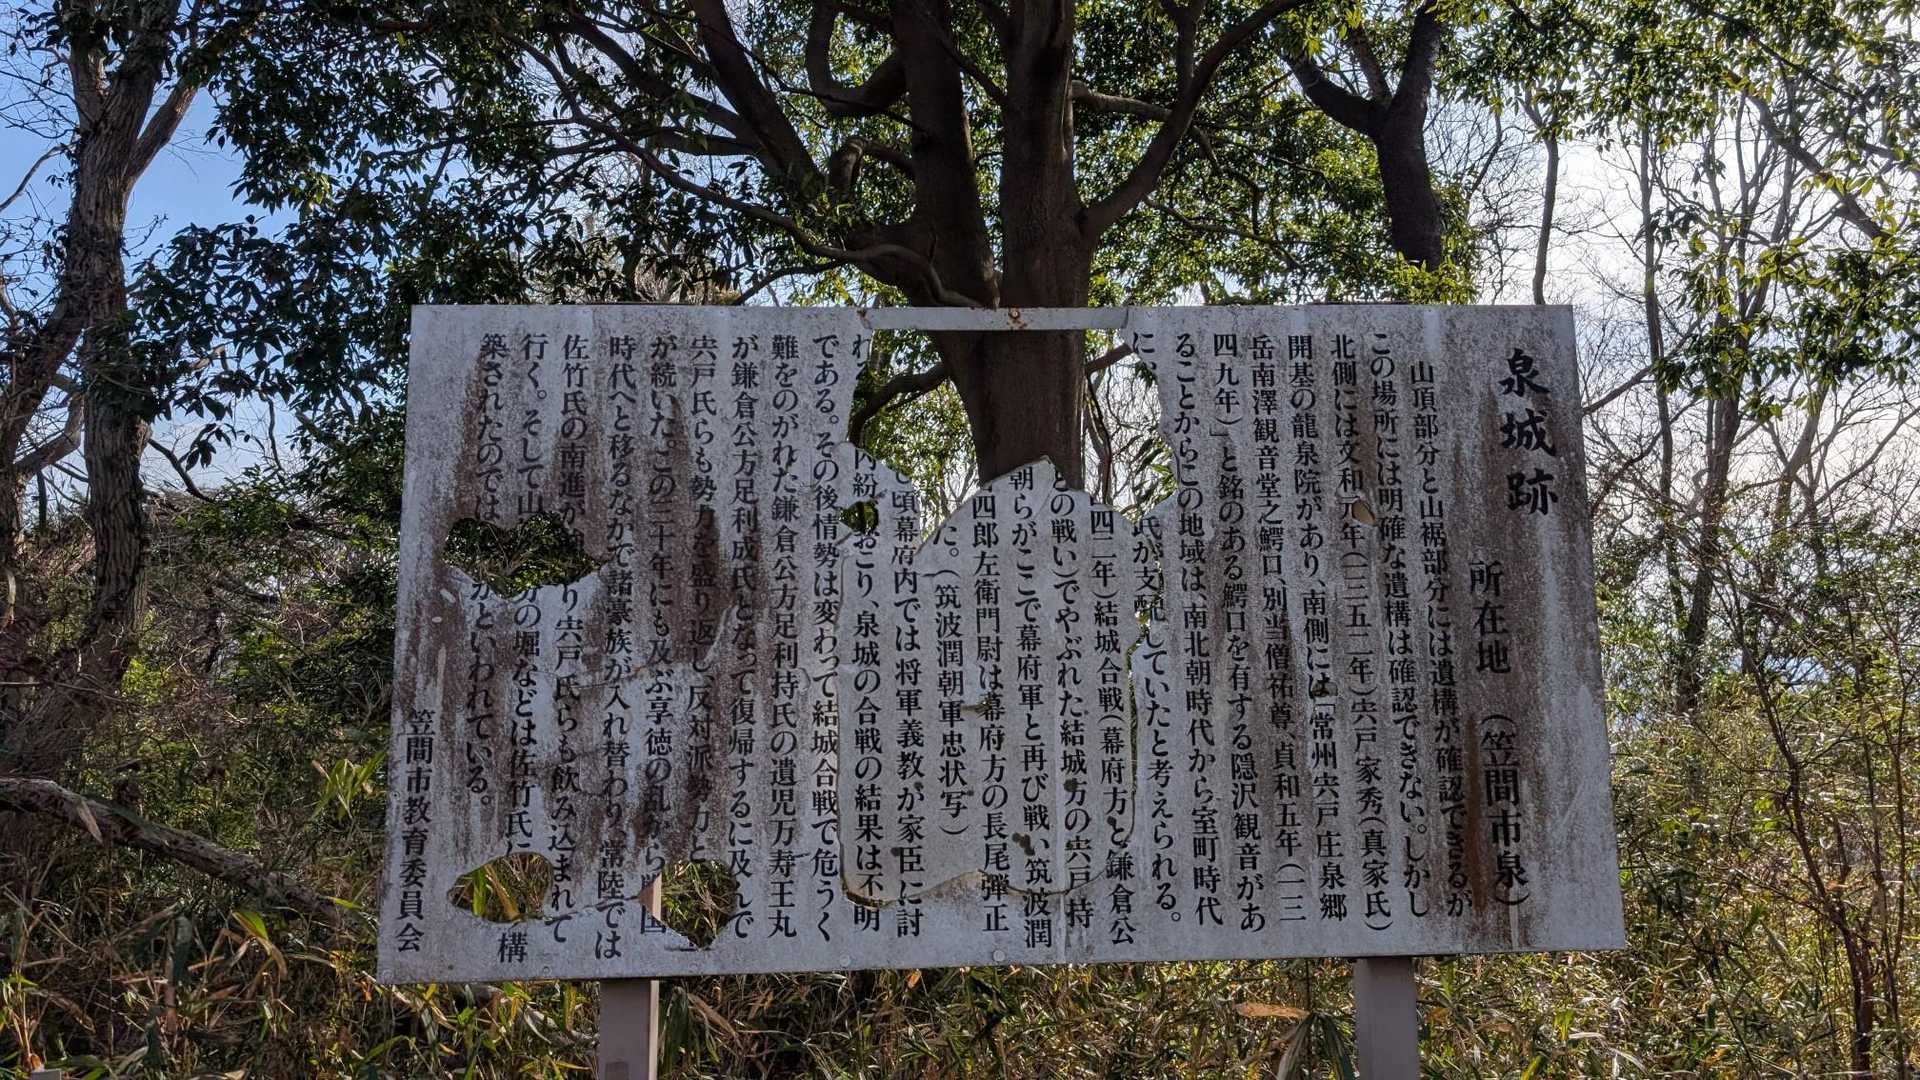 泉城跡
所在地 (笠間市泉)
山頂部分と山裾部分には遺構が確認できるが
この場所には明確な遺構は確認できない。しかし
北側には文和元年(一三五二年)宍戸家秀(真家氏)
開基の龍泉院があり、南側には「常州宍戸庄泉郷
岳南澤観音堂之鰐口、別当僧祐尊、貞和五年(一三
四九年)」と銘のある鰐口を有する隠沢観音があ
ることからこの地域は、南北朝時代から室町時代
に、
氏が支配していたと考えられる。
四二年)結城合戦(幕府方と鎌倉公
との戦い)でやぶれた結城方の宍戸持
朝らがここで幕府軍と再び戦い、筑波潤
四郎左衛門尉は幕府方の長尾弾正
た。(筑波潤朝軍忠状写)
し頃幕府内では将軍義教が家臣に討
れ
内紛がおこり、泉城の合戦の結果は不明
である。その後情勢は変わって結城合戦で危うく
難をのがれた鎌倉公方足利持氏の遺児万寿王丸
が鎌倉公方足利成氏となって復帰するに及んで
宍戸氏らも勢力を盛り返し、反対派勢力と
が続いた。この三十年にも及ぶ享徳の乱から戦国
時代へと移るなかで諸豪族が入れ替わり、常陸では
佐竹氏の南進が
り宍戸氏らも飲み込まれて
行く。そして山
分の堀などは佐竹氏に
構
築されたのでは
かといわれている。
笠間市教育委員会